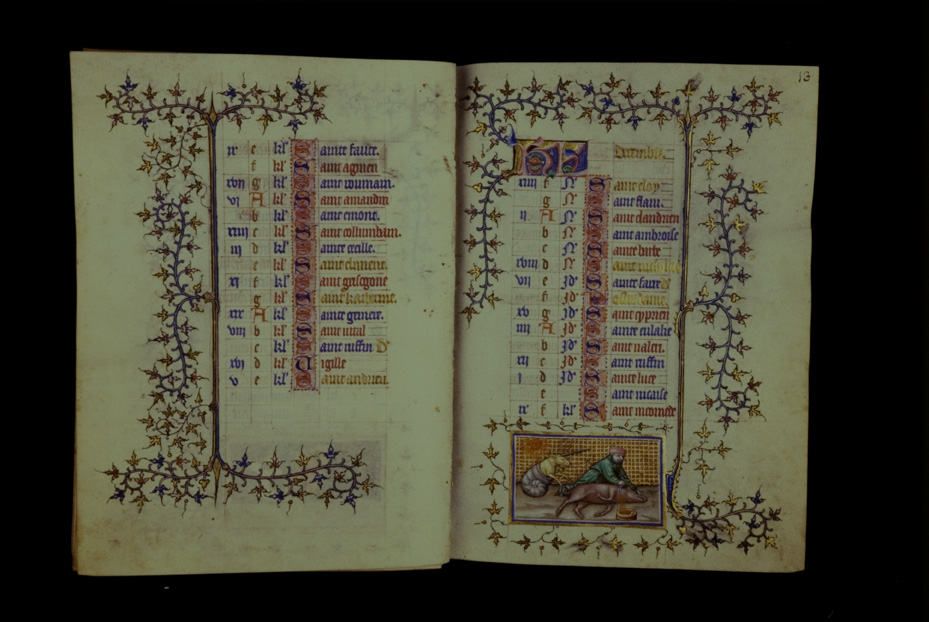 e kł Sainte fauste.
f kł Saint agnien
xvij g kł Saint roumain.
vj A kł Saint amandin
b kł Saint emont.
xiiij c kł Saint collumbam.
iij d kł Sainte cecille.
e kł Saint climent.
xj f kł Saint grisogone
g kł Sainte katherine.
xix A kł Sainte genneie.
viij b kł Saint vital
c kł Saint ruffin
xvj d kł Vigille
v e kł Saint andrieu.
13
Decembre.
f N Saint eloy
g N Saint flain.
ij A N Saint claudien
b N Saint ambroise
c N Sainte barbe
xviij d N Saint nicholas
vij e Id' Sainte faire
f Id' nostre dame.
xv g Id' Saint cyprien
iiij A Id' Sainte eulalie
b Id' Saint valeri.
xij c Id' Saint ruffin
j d Id' Sainte luce
e Saint nicaise
ix f kł Saint nicomede